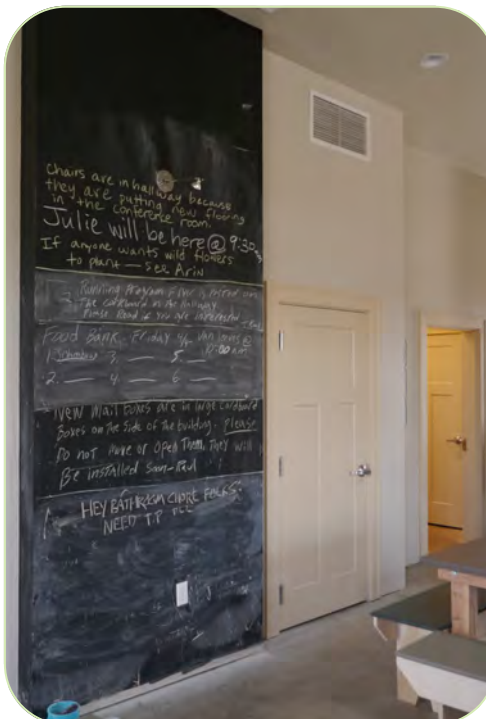 Chairs are in hallway because
they are putting new flooring
in the conference room.
Julie will be here @ 9:30
If anyone wants wild flowers
to plant — see Arin
Running Program Flyer is posted on
the corkboard in the Hallway
Please Read if you are interested
Food Bank Friday van leaves @
1. 3. 5.
2. 4. 6.
New Mail Boxes are in large Cardboard
Boxes on the side of the building. Please
Do not move or Open Them. They will
Be installed Soon - Raul
HEY BATHROOM CHORE FOLKS:
NEED T.P.